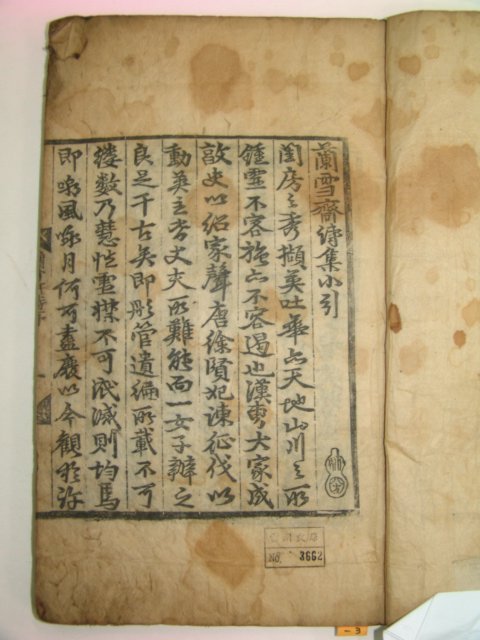 蘭雪齋詩集小引
閨房之秀擷英吐華亦天地山川之所
鍾靈不容施亦不容遏也漢曹大家成
敦史以紹家聲唐徐賢妃諫征伐以
動英主皆丈夫所難能而一女子辦之
良足千古矣即彤管遺編所載不可
縷數乃慧性靈襟不可泯滅則均焉
即嘲風咏月何可盡廢以今觀於許
No. 3662
-3